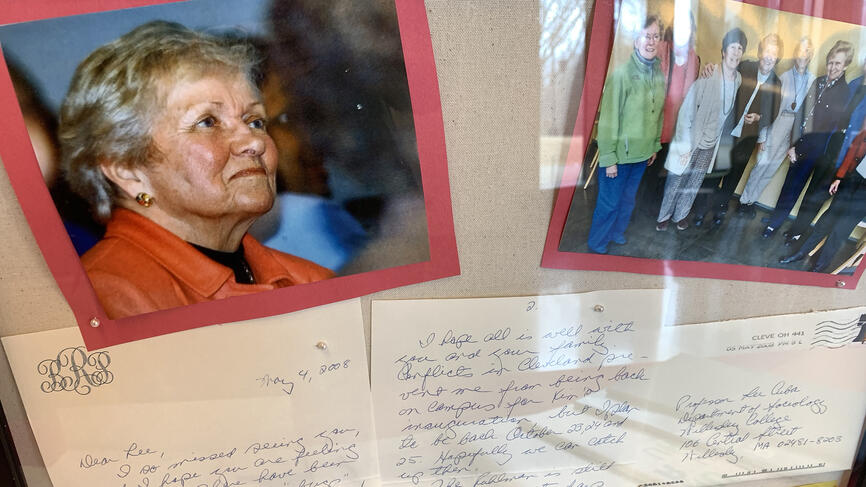 BRB
May 4, 2008
Dear Lee,
I so missed seeing you,
I hope you are feeling
have been
2.
I hope all is well with
you and your family.
Conflicts in Cleveland pre-
vent me from being back
on campus for Kim's
inauguration but I plan
to be back October 23, 24 and
25. Hopefully we can catch
up then.
The Pohlman is still
CLEVE OH 441
05 MAY 2008 PM 8 L
Professor Lee Cuba
Department of Sociology
Wellesley College
106 Central Street
Wellesley, MA 02481-8203